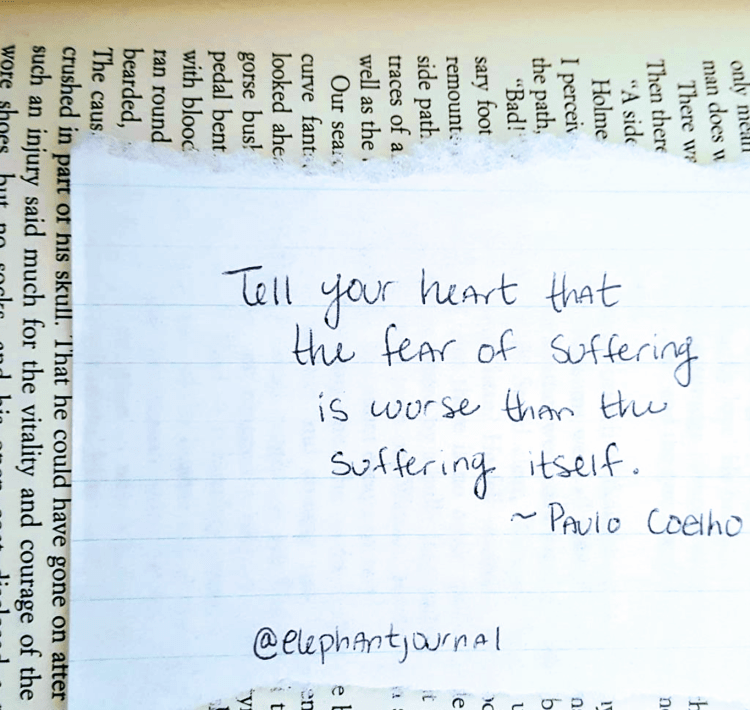 Tell your heart that
the fear of suffering
is worse than the
suffering itself.
~ Paulo Coelho
@elephantjournal
only
man does
There
Then there
"A side
I
the path,
"Bad!
sary foot
side path.
traces of a
well as the
Our
curve
looked
gorse
pedal bent
with
ran round
bearded,
The
crushed in part of his skull. That he could have gone on after
such an injury said much for the vitality and courage of the
wore shoes, but no socks, and his open coat